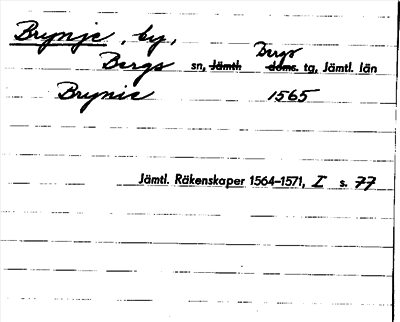 Brynje, by,
Bergs sn, Jämth Bergs doms. tg, Jämtl. län
Brynie 1565
Jämtl. Räkenskaper 1564-1571, I s. 77